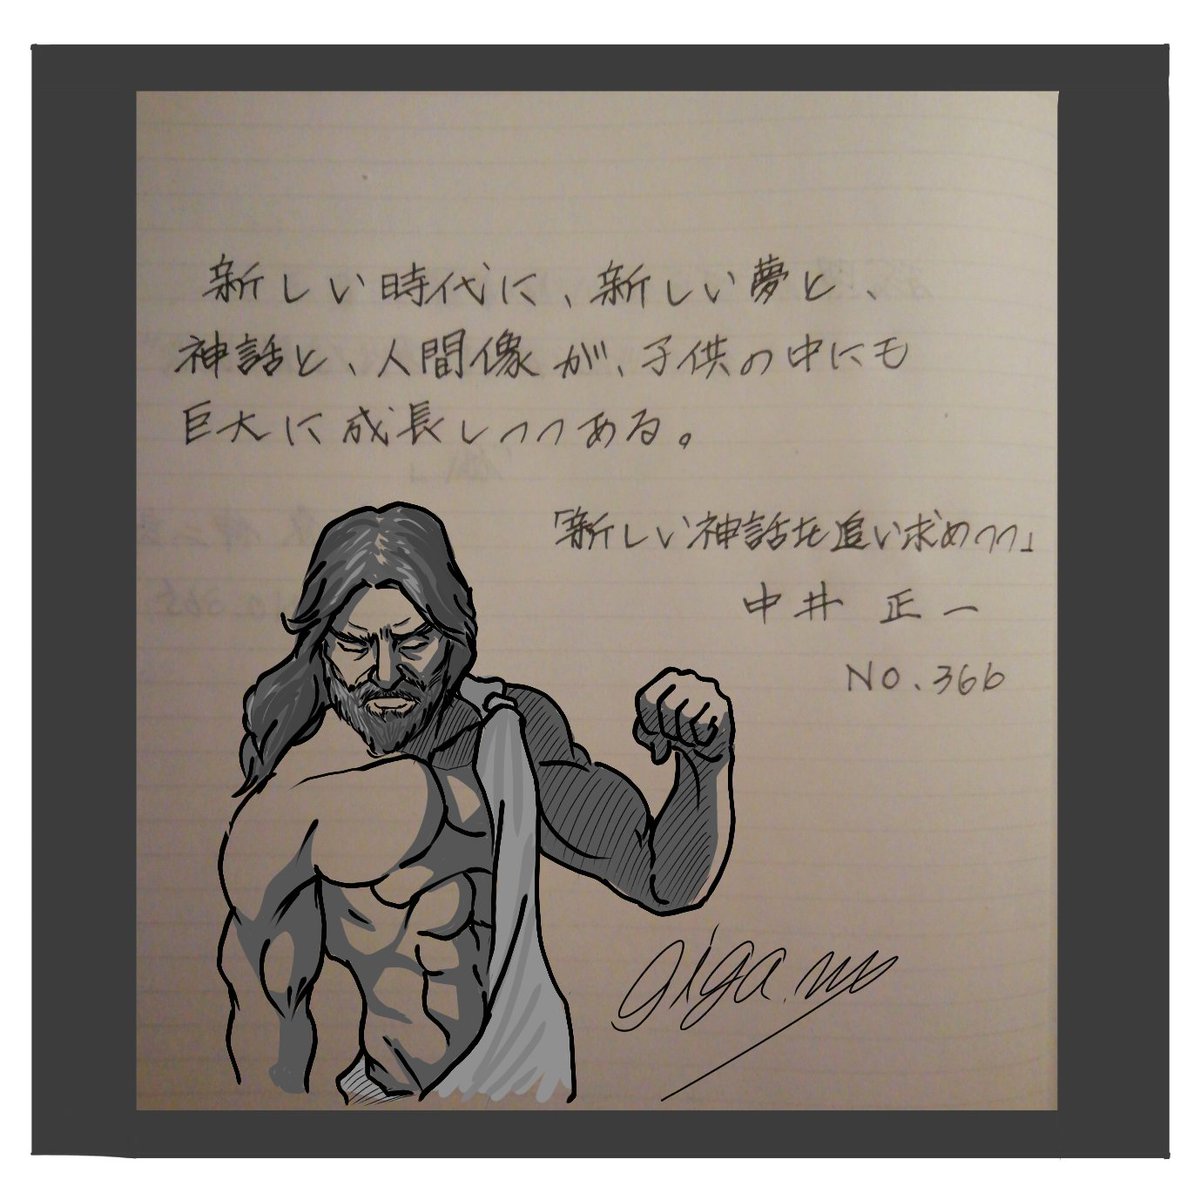 新しい時代に、新しい夢と、
神話と、人間像が、子供の中にも
巨大に成長しつつある。
「新しい神話を追い求めつつ」
中井 正一
NO.366